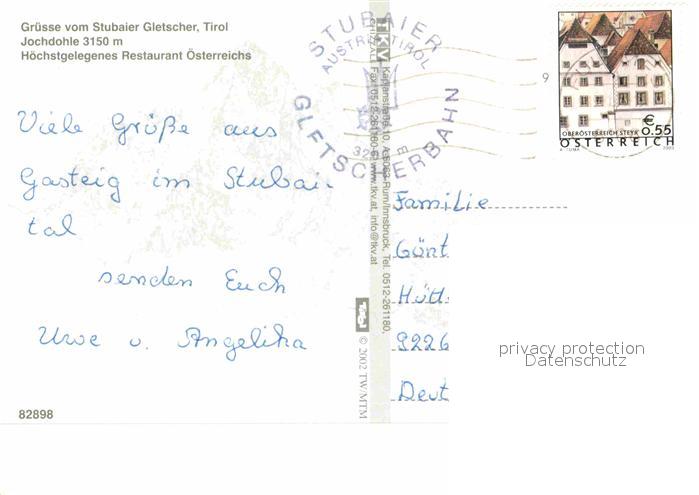 Grüsse vom Stubaier Gletscher, Tirol
Jochdohle 3150 m
Höchstgelegenes Restaurant Österreichs
Viele Grüße aus
Gasteig im Stubai-
tal
senden Euch
Uwe u. Angelika
82898
STUBAIER
AUSTRIA TIROL
GLETSCHERBAHN
TKV
Kaplanstraße 10, A-6063 Rum/Innsbruck, Tel. 0512-261180,
Fax 0512-261180-6, www.tkv.at, info@tkv.at
Tirol
© 2002 TW/MTM
9
€
0.55
OBERÖSTERREICH STEYR
A. TUMA 2003
ÖSTERREICH
Familie
Günt
Hütt
9226
Deut
privacy protection
Datenschutz